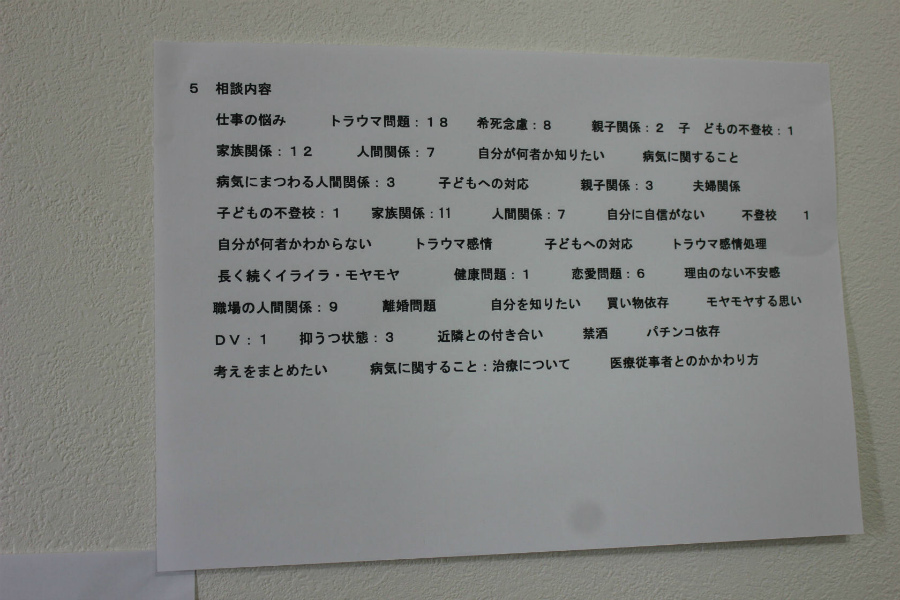 ５　相談内容
仕事の悩み　トラウマ問題：１８　希死念慮：８　親子関係：２　子　どもの不登校：１
家族関係：１２　人間関係：７　自分が何者か知りたい　病気に関すること
病気にまつわる人間関係：３　子どもへの対応　親子関係：３　夫婦関係
子どもの不登校：１　家族関係：11　人間関係：７　自分に自信がない　不登校　１
自分が何者かわからない　トラウマ感情　子どもへの対応　トラウマ感情処理
長く続くイライラ・モヤモヤ　健康問題：１　恋愛問題：６　理由のない不安感
職場の人間関係：９　離婚問題　自分を知りたい　買い物依存　モヤモヤする思い
ＤＶ：１　抑うつ状態：３　近隣との付き合い　禁酒　パチンコ依存
考えをまとめたい　病気に関すること：治療について　医療従事者とのかかわり方